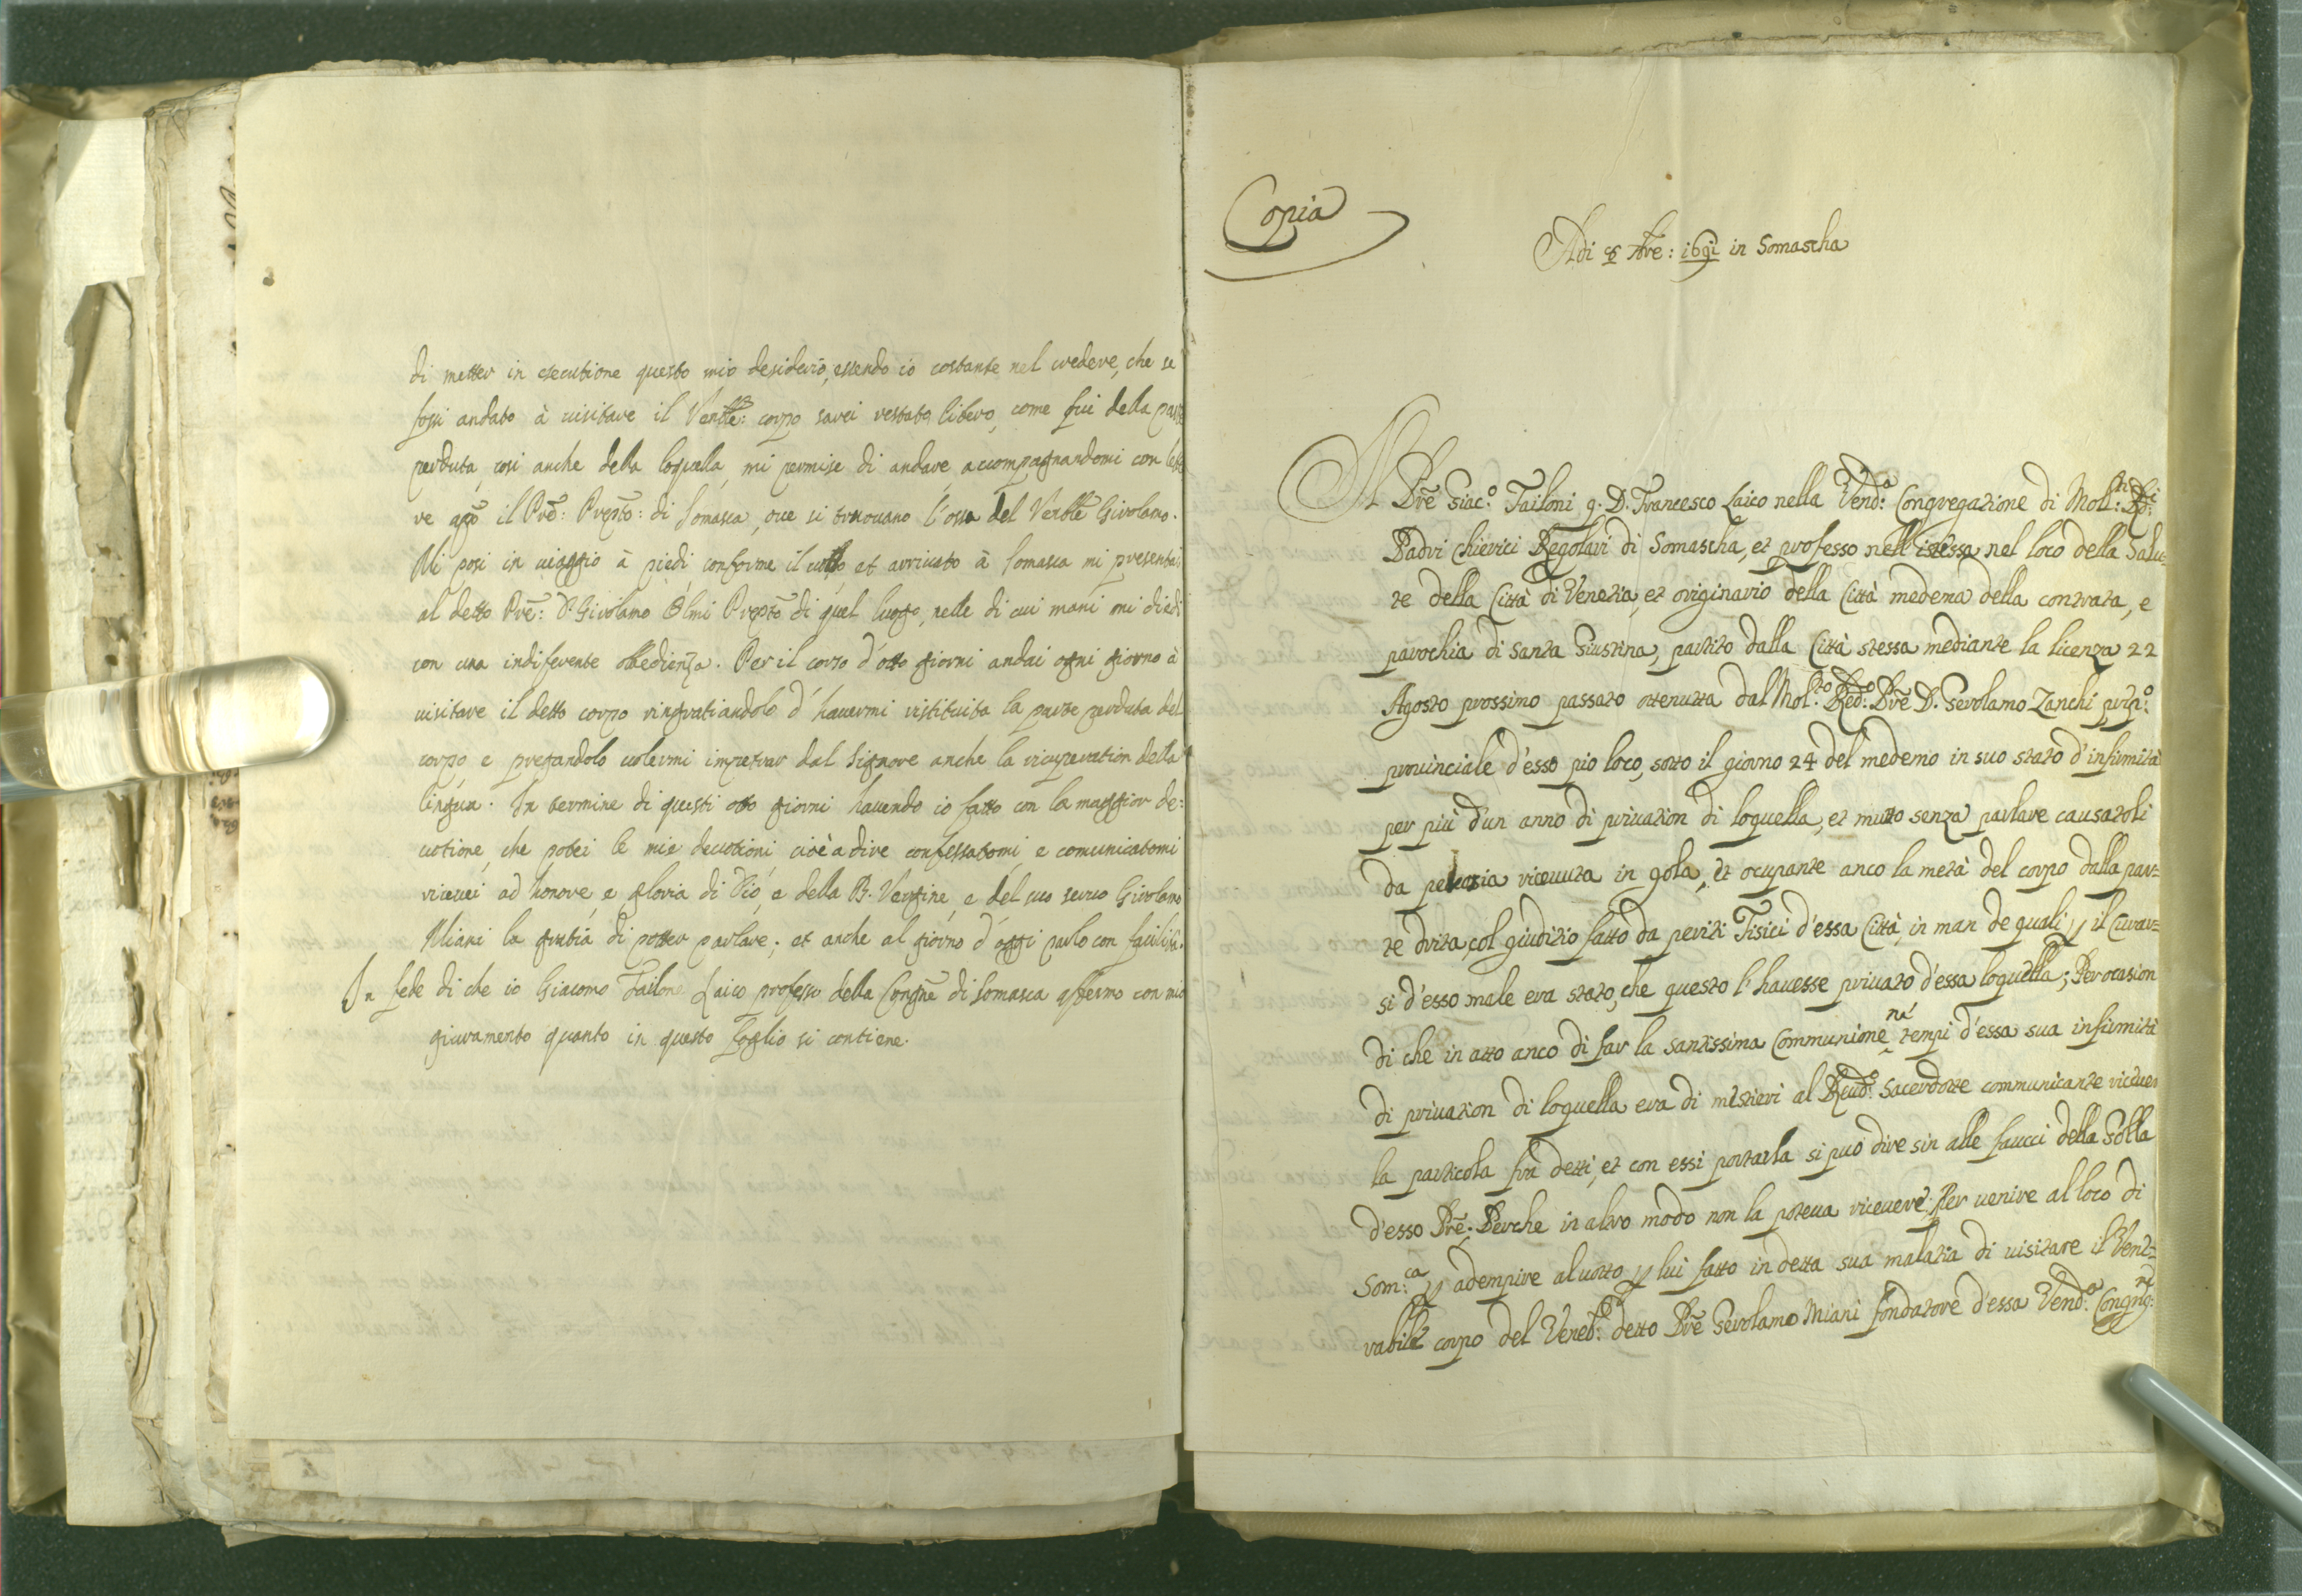 di metter in esecutione questo mio desiderio, essendo io costante nel credere, che se
fossi andato à visitare il Venble: corpo sarei restato libero, come fui della parte
perduta, così anche della loquella, mi permise di andare, accompagnandomi con lette
re apo il Prē: Prepto: di Somasca, oue si trouano l'ossa del Venble Girolamo.
Mi posi in uiaggio à piedi, conforme il uotto et arriuato à Somasca mi presentai
al detto Prē: D. Girolamo Olmi Prepto di quel luogo, nelle di cui mani mi diedi
con una indiferente obedienza. Per il corso d'otto giorni andai ogni giorno à
visitare il detto corpo ringratiandolo d'hauermi restituita la parte perduta del
corpo e pregandolo uolermi impetrar dal Signore anche la ricuperation della
lingua. In termine di questi otto giorni hauendo io fatto con la maggior de:
uotione, che potei le mie deuotioni cioè a dire confessatomi e comunicatomi
riceuei ad honore, e gloria di Dio, e della B. Vergine, e del suo seruo Girolamo
Miani la gratia di potter parlare; et anche al giorno d'oggi parlo con facilità.
In fede di che io Giacomo Tailone Laico professo della Congne di Somasca affermo con mio
giuramento quanto in questo foglio si contiene.
Copia
Adi 8 7bre: 1691 in Somascha
Il Prē Giac:o Tailoni q. D. Francesco Laico nella Vend:a Congregazione di Molt: Rdi:
Padri Chierici Regolari di Somascha, et professo nell'istessa nel loco della Salu=
te della Città di Venetia, et originario della Città medema della contrata, e
parochia di Santa Giustina, partito dalla Città stessa mediante la licenza 22
Agosto prossimo passato ottenutta dal Mol:to Red:o Prē D. Gerolamo Zanchi prep:o
prouinciale d'esso pio loco, sotto il giorno 24 del medemo in suo stato d'infirmità
per più d'un anno di priuation di loquella, et mutto senza parlare causatoli
da ricevuta in gola, et ocupante anco la metà del corpo dalla par=
te drita, col giuditio fatto da periti Fisici d'essa Città, in man de quali p il Curar=
si d'esso male era stato, che questo l'hauesse priuato d'essa loquella; Per ocasion
di che in atto anco di far la santissima Communione ne' tempi d'essa sua infirmità
di priuation di loquella era di mistieri al Reud:o Sacerdotte communicante riceuer
la particola frà detti, et con essi portarla si può dire sin alle faucci della Golla
d'esso Prē: Perche in altro modo non la poteua riceuere; Per uenire al loco di
Som:ca p adempire al uotto p lui fatto in detta sua malatia di uisitare il Vene=
rabile corpo del Vened:o detto Prē Gerolamo Miani fondatore d'essa Vend:a Congreg:ne